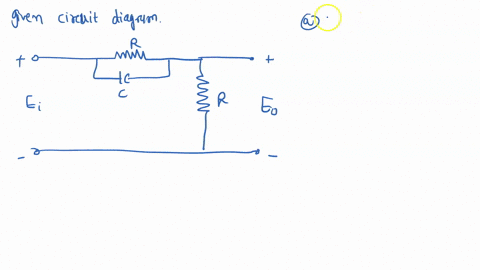 given circuit diagram.
(a)
R
+
+
C
Ei
R
Eo
-
-